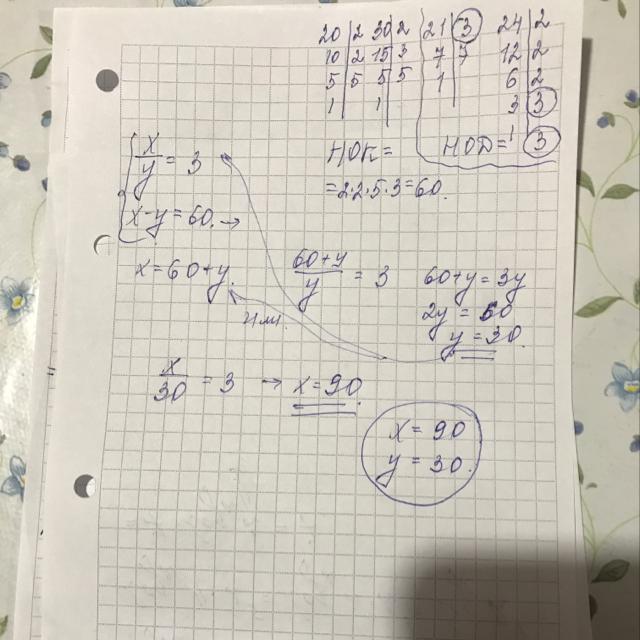 20 | 2 30 | 2 21 | 3 24 | 2
10 | 2 15 | 3 7 | 7 12 | 2
5 | 5 5 | 5 1 | 6 | 2
1 | 1 | 3 | 3
1
НОК =
НОД = 3
= 2·2·5·3=60.
x/y = 3
x-y=60. →
x=60+y.
(60+y)/y = 3
60+y=3y
2y = 60
y = 30.
или.
x/30 = 3 → x=90.
x = 90
y = 30.